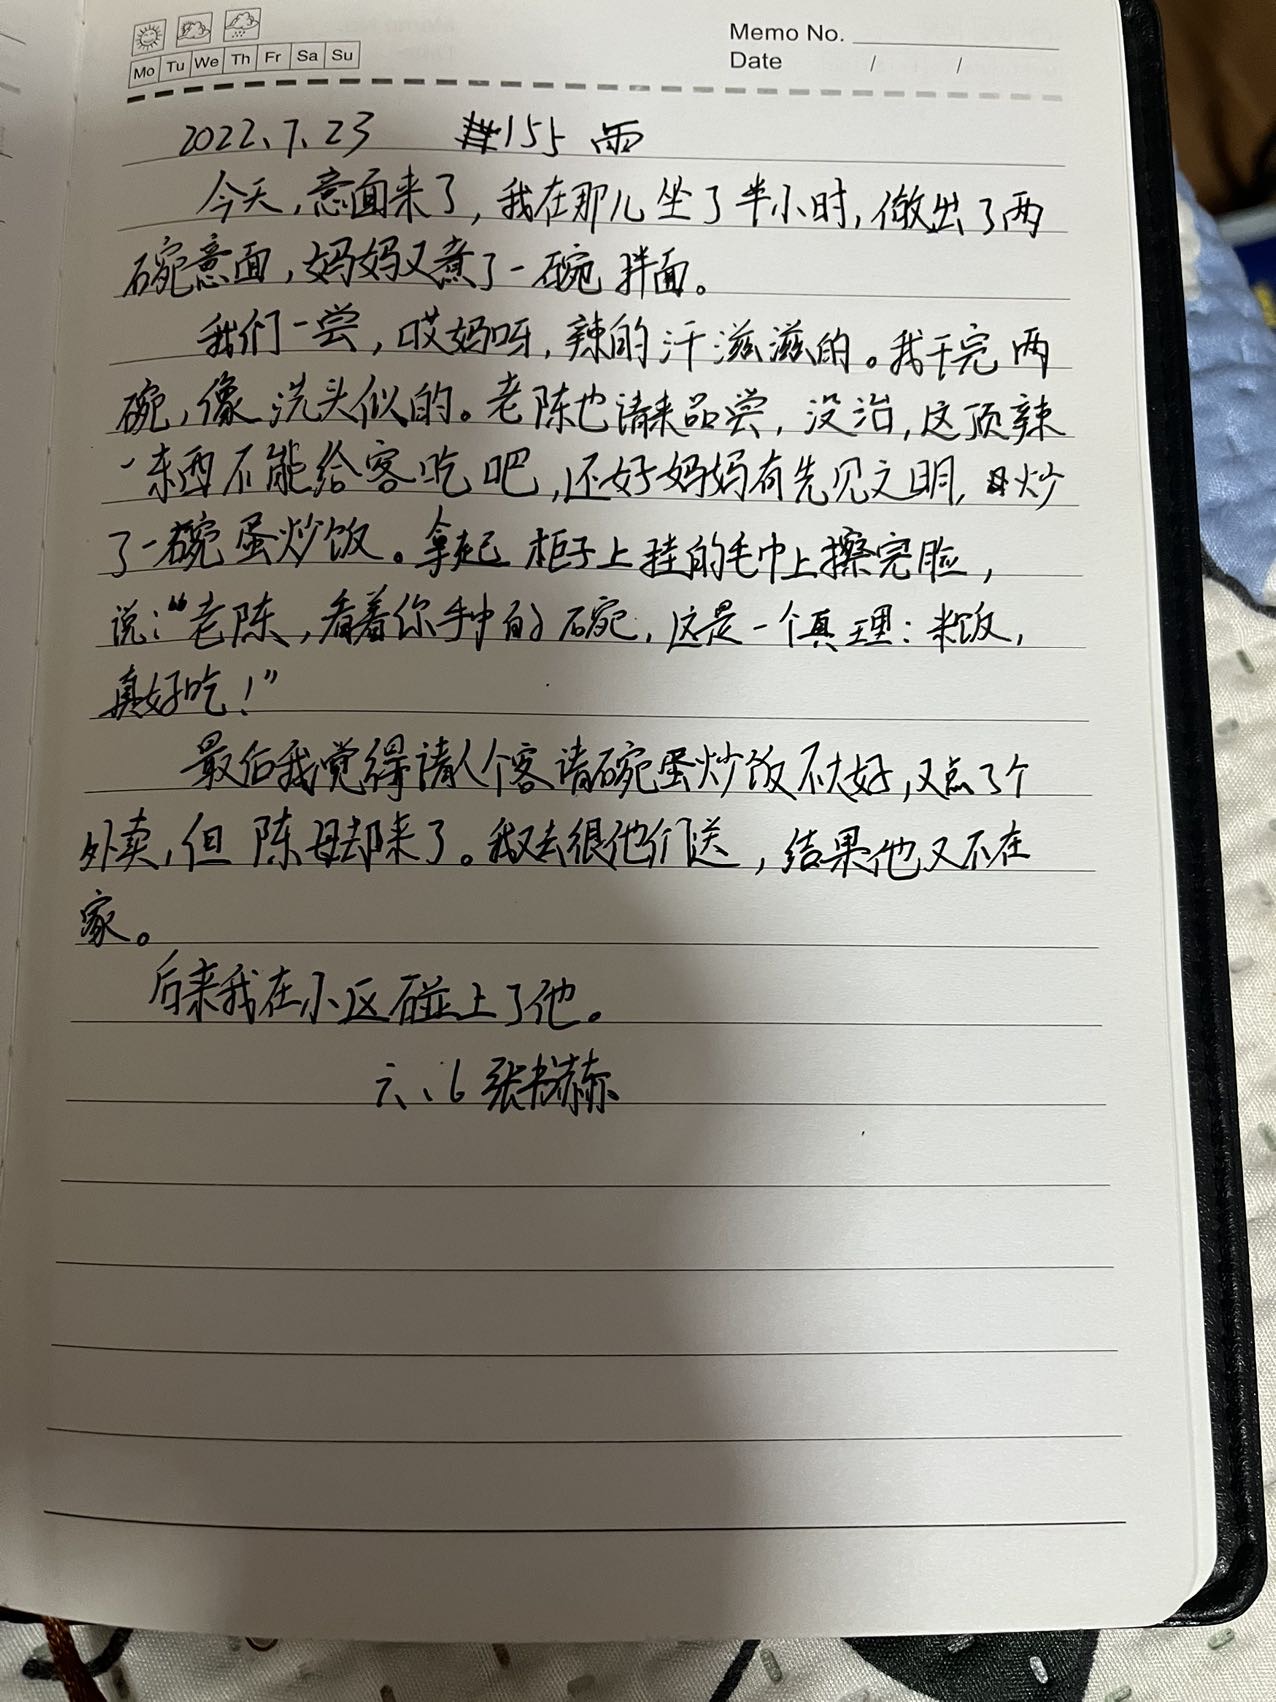 Memo No.
Mo Tu We Th Fr Sa Su
Date / /
2022.7.23 #155 雨
今天,意面来了,我在那儿坐了半小时,做出了两
碗意面,妈妈又煮了一碗拌面。
我们一尝,哎妈呀,辣的汗滋滋的。我干完两
碗,像洗头似的。老陈也请来品尝,没治,这顶辣
东西不能给客吃吧,还好妈妈有先见之明,炒
了一碗蛋炒饭。拿起柜子上挂的毛巾上擦完脸,
说:“老陈,看着你手中的碗,这是一个真理:米饭,
真好吃!”
最后我觉得请人个客请碗蛋炒饭不大好,又点了个
外卖,但陈母却来了。我又去很他们送,结果他又不在
家。
后来我在小区碰上了他。
六、6 张书赫